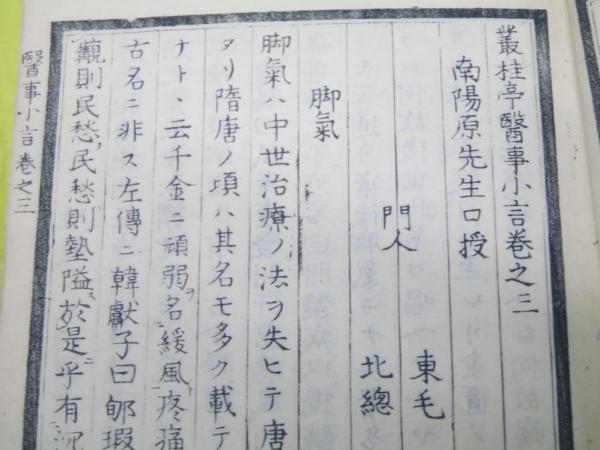 叢桂亭醫事小言巻之三
南陽原先生口授
東毛
門人
北總
脚氣
脚氣ハ中世治療ノ法ヲ失ヒテ唐
タリ隋唐ノ項ハ其名モ多ク載テ
ナト、云千金ニ頑弱ヲ名緩風疼痛
古名ニ非ス左傳ニ韓獻子曰郇瑕
觀則民愁民愁則墊隘於是乎有沉
醫事小言巻之三